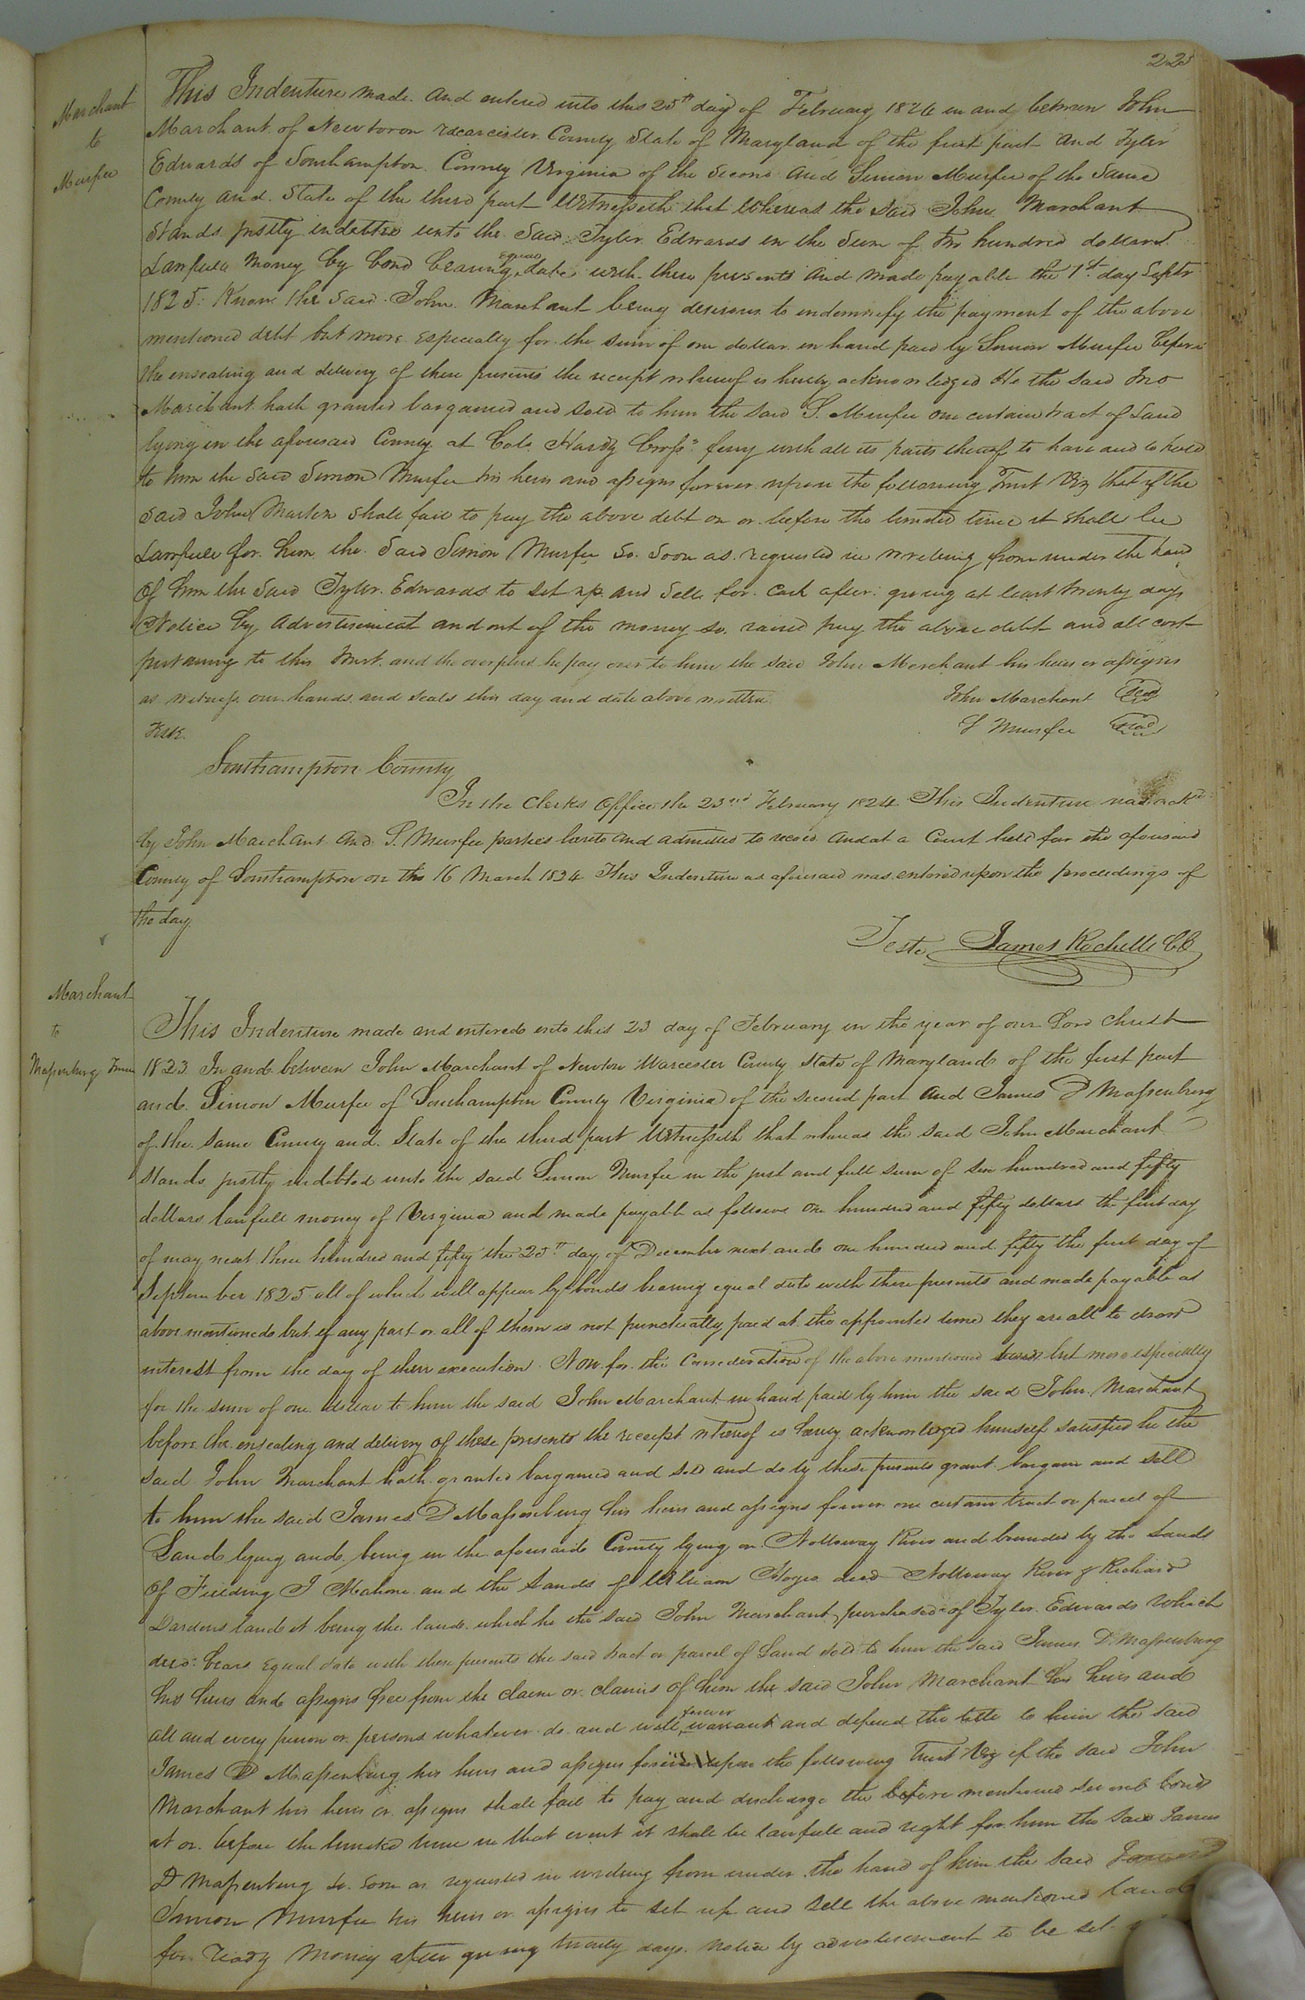 225
Marchant
to
Murfee
This Indenture made and entered into this 25th day of February 1824 in and between John
Marchant of Newtoron County State of Maryland of the first part and Tyler
Edwards of Southampton County Virginia of the Second and Simon Murfee of the Same
County and State of the third part Witnesseth that Whereas the said John Marchant
Stands justly indebted unto the Said Tyler Edwards in the Sum of two hundred dollars
Lawfull Money by bond bearing equal date with these presents and made payable the 1st day Septr
1825. Know the Said John Marchant being desirous to indemnify the payment of the above
mentioned debt but more especially for the sum of one dollar in hand paid by Simon Murfee before
the ensealing and delivery of these presents the receipt whereof is hereby acknowledged He the said Jno
Marchant hath granted bargained and sold to him the said S. Murfee one certain tract of Land
lying in the aforesaid County at Cols Hardy Cross's ferry with all its parts thereof to have and to hold
to him the said Simon Murfee his heirs and assigns forever upon the following Trust Viz that if the
said John shall fail to pay the above debt on or before the limited time it shall be
Lawfull for him the Said Simon Murfee so soon as requested in writing from under the hand
Of him the Said Tyler Edwards to set up and Sell for Cash after giving at least twenty days
Notice by Advertisement and out of the money so raised pay the above debt and all cost
pertaining to this Trust and the overplus he pay over to him the said John Marchant his heirs or assigns
as witness our hands and seals this day and date above written John Marchant Seal
Teste. S Murfee Seal
Southampton County
In the Clerks Office the 23rd February 1824 This Indenture was ackd
by John Marchant and S. Murfee parties hereto and admitted to record And at a Court held for the aforesaid
County of Southampton on the 16 March 1834 This Indenture as aforesaid was entered upon the proceedings of
the day
Teste James Rochelle CC
Marchant
to
Massenburg Trustee
This Indenture made and entered into this 23 day of February in the year of our Lord Christ
1823 In and between John Marchant of Newton Worcester County State of Maryland of the first part
and Simon Murfee of Southampton County Virginia of the second part and James D Massenburg
of the same County and State of the third part Witnesseth that whereas the said John Marchant
Stands justly indebted unto the said Simon Murfee in the just and full sum of six hundred and fifty
dollars lawfull money of Virginia and made payable as follows One hundred and fifty dollars the first day
of may next three hundred and fifty the 25th day of December next and one hundred and fifty the first day of
September 1825 all of which will appear by bonds bearing equal date with these presents and made payable as
above mentioned but if any part or all of them is not punctually paid at the appointed time they are all to draw
interest from the day of their execution. Now for the Consideration of the above mentioned but more especially
for the sum of one dollar to him the said John Marchant in hand paid by him the said John Marchant
before the ensealing and delivery of these presents the receipt whereof is hereby acknowledged himself satisfied he the
said John Marchant hath granted bargained and sold and do by these presents grant bargain and sell
to him the said James D Massenburg his heirs and assigns forever one certain tract or parcel of
Land lying and being in the aforesaid County lying on Nottoway River and bounded by the Lands
Of Fielding J Mahone and the Lands of William decd Nottoway River & Richard
Dardens land it being the land which he the said John Marchant purchased of Tyler Edwards Which
deed bears equal date with these presents the said tract or parcel of Land sold to him the said James D. Massenburg
his heirs and assigns free from the claim or claims of him the said John Marchant his heirs and
all and every person or persons whatever do and will forever warrant and defend the title to him the said
James D Massenburg his heirs and assigns forever upon the following Trust Viz if the said John
Marchant his heirs or assigns shall fail to pay and discharge the before mentioned several bonds
at or before the limited time in that event it shall be lawfull and right for him the said James
D Massenburg so soon as requested in writing from under the hand of him the said
Simon Murfee his heirs or assigns to set up and sell the above mentioned land
for ready money after giving twenty days notice by advertisement to be set